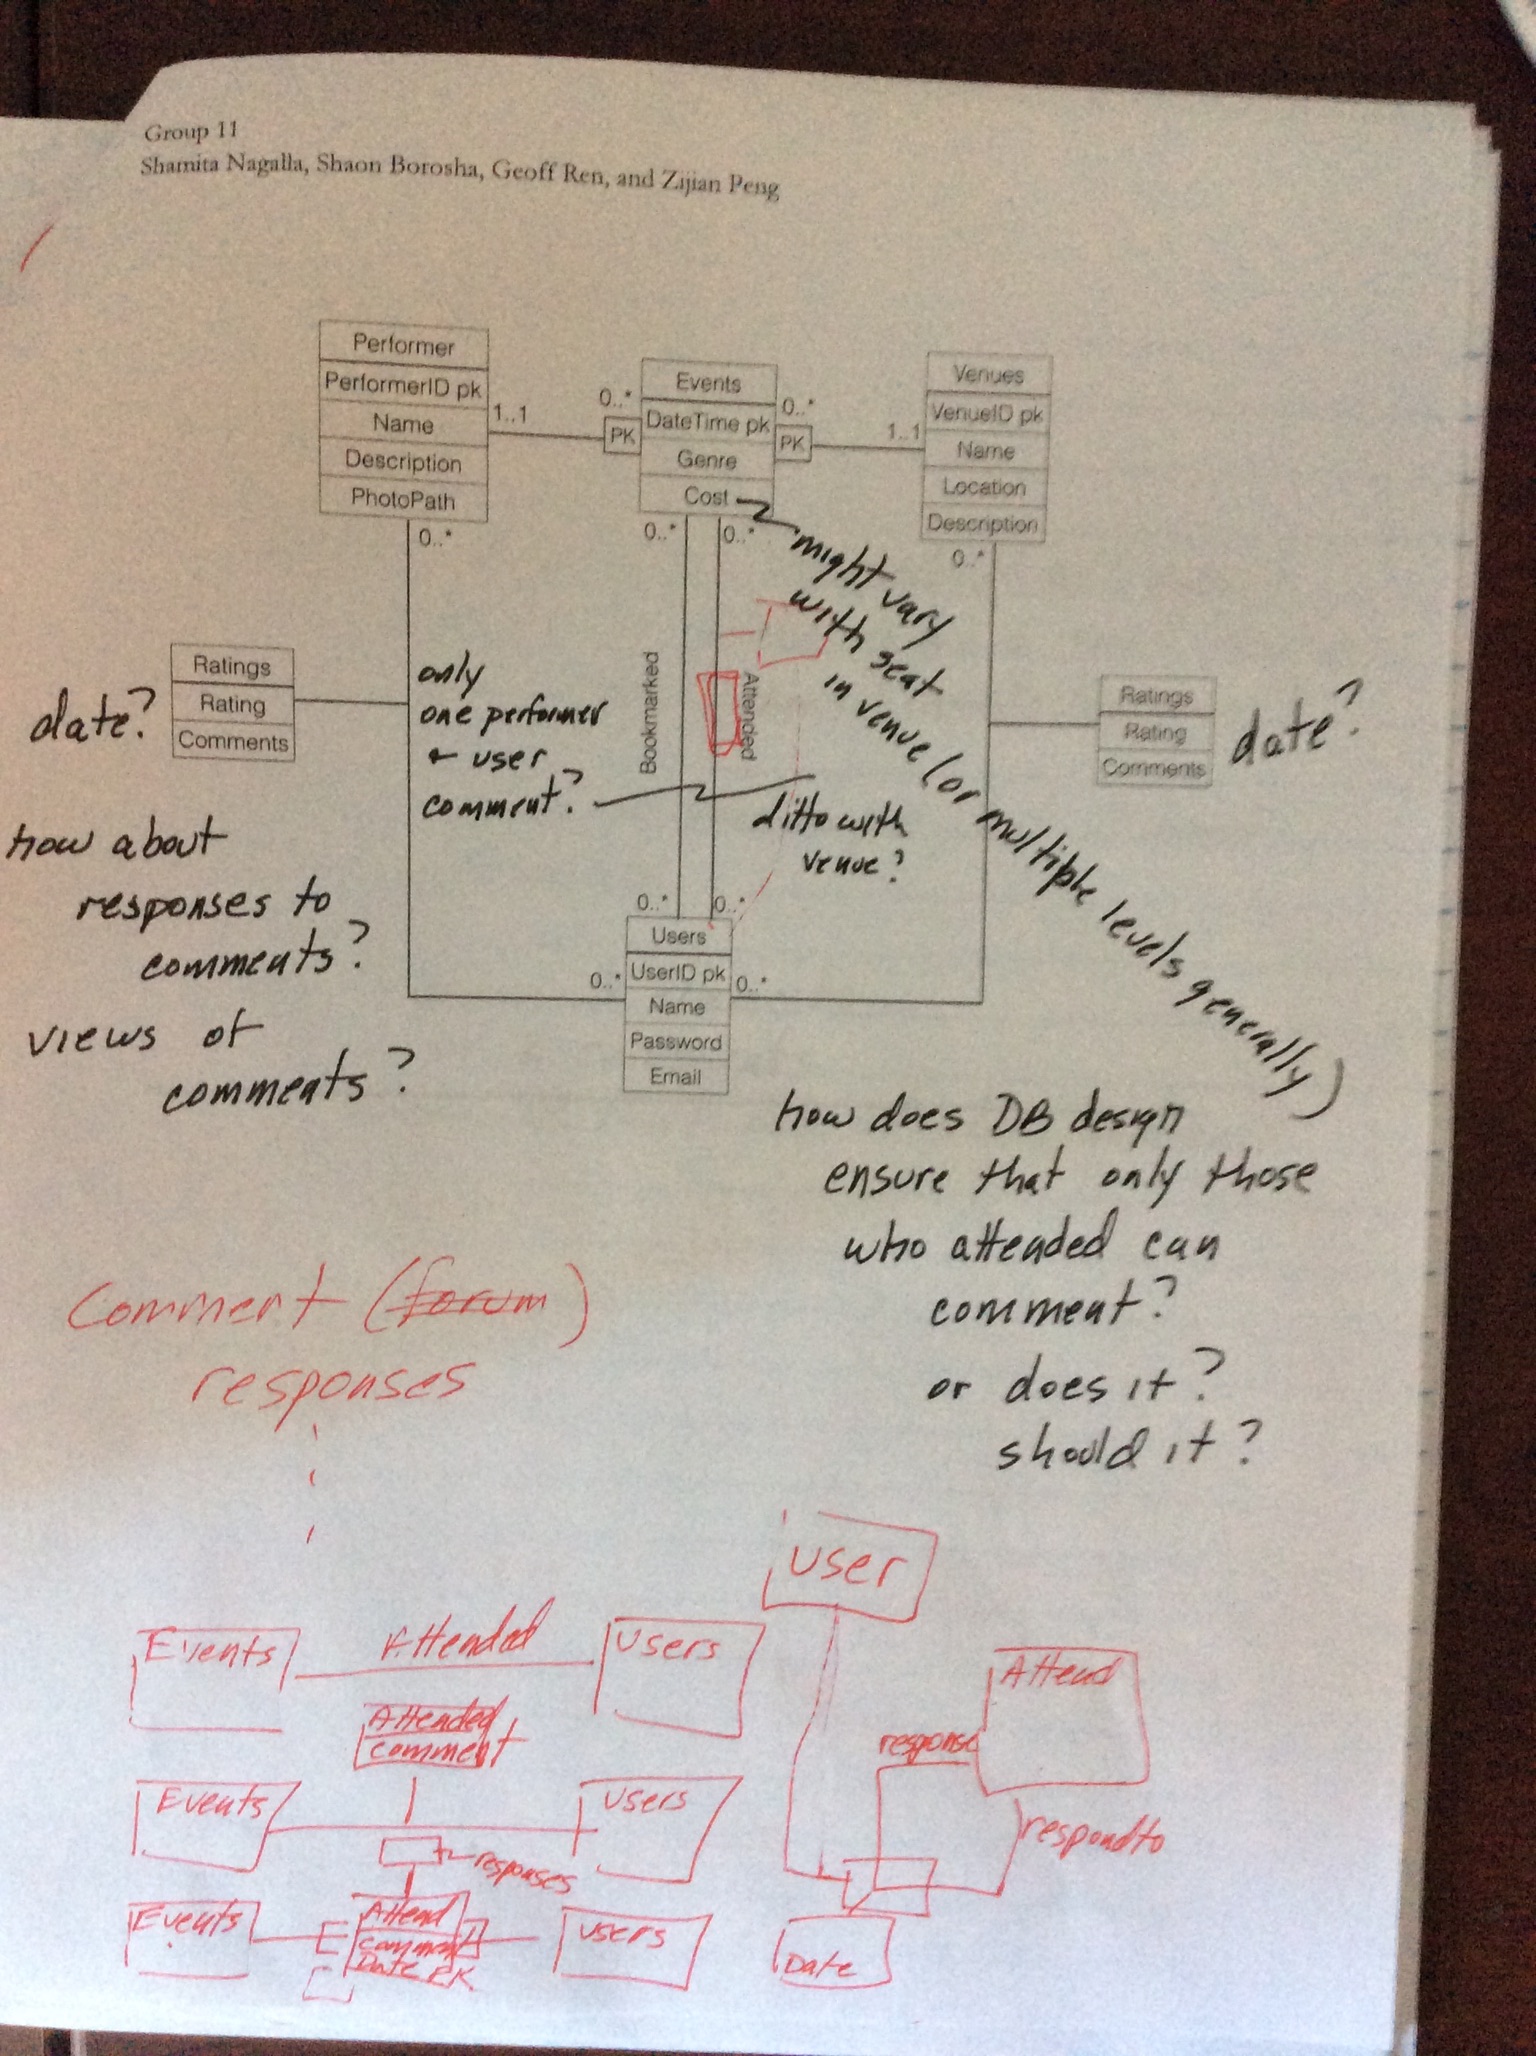 Group 11
Shamita Nagalla, Shaon Borosha, Geoff Ren, and Zijian Peng
Performer
PerformerID pk
Name
Description
PhotoPath
1..1
0..*
PK
Events
DateTime pk
Genre
Cost
0..*
PK
1..1
Venues
VenueID pk
Name
Location
Description
0..*
0..*
0..*
0..*
might vary
with seat
in venue (or multiple levels generally)
date?
Ratings
Rating
Comments
only
one performer
+ user
comment?
Bookmarked
Attended
ditto with
venue?
Ratings
Rating
Comments
date?
how about
responses to
comments?
views of
comments?
0..*
0..*
0..*
Users
UserID pk
Name
Password
Email
0..*
how does DB design
ensure that only those
who attended can
comment?
or does it?
should it?
Comment (forum)
responses
Events
Attended
Users
Attended
comment
Events
Users
responses
Events
Attend
comment
Date PK
Users
User
Attend
response
respondto
Date